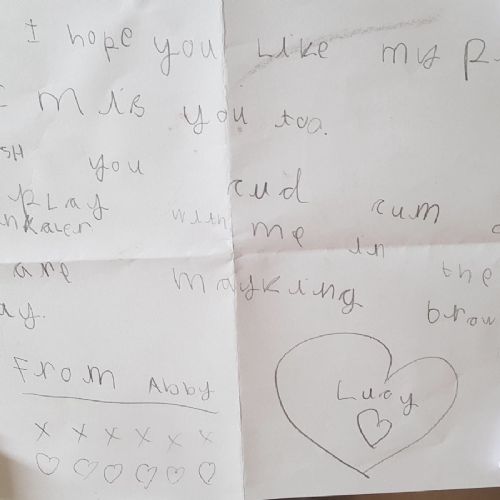 I hope you Like my P
I Mis you too.
SH you cud cum
PLay with me in the
nkaler
are mayking brow
ay.
From Abby
x x x x x x
Lucy